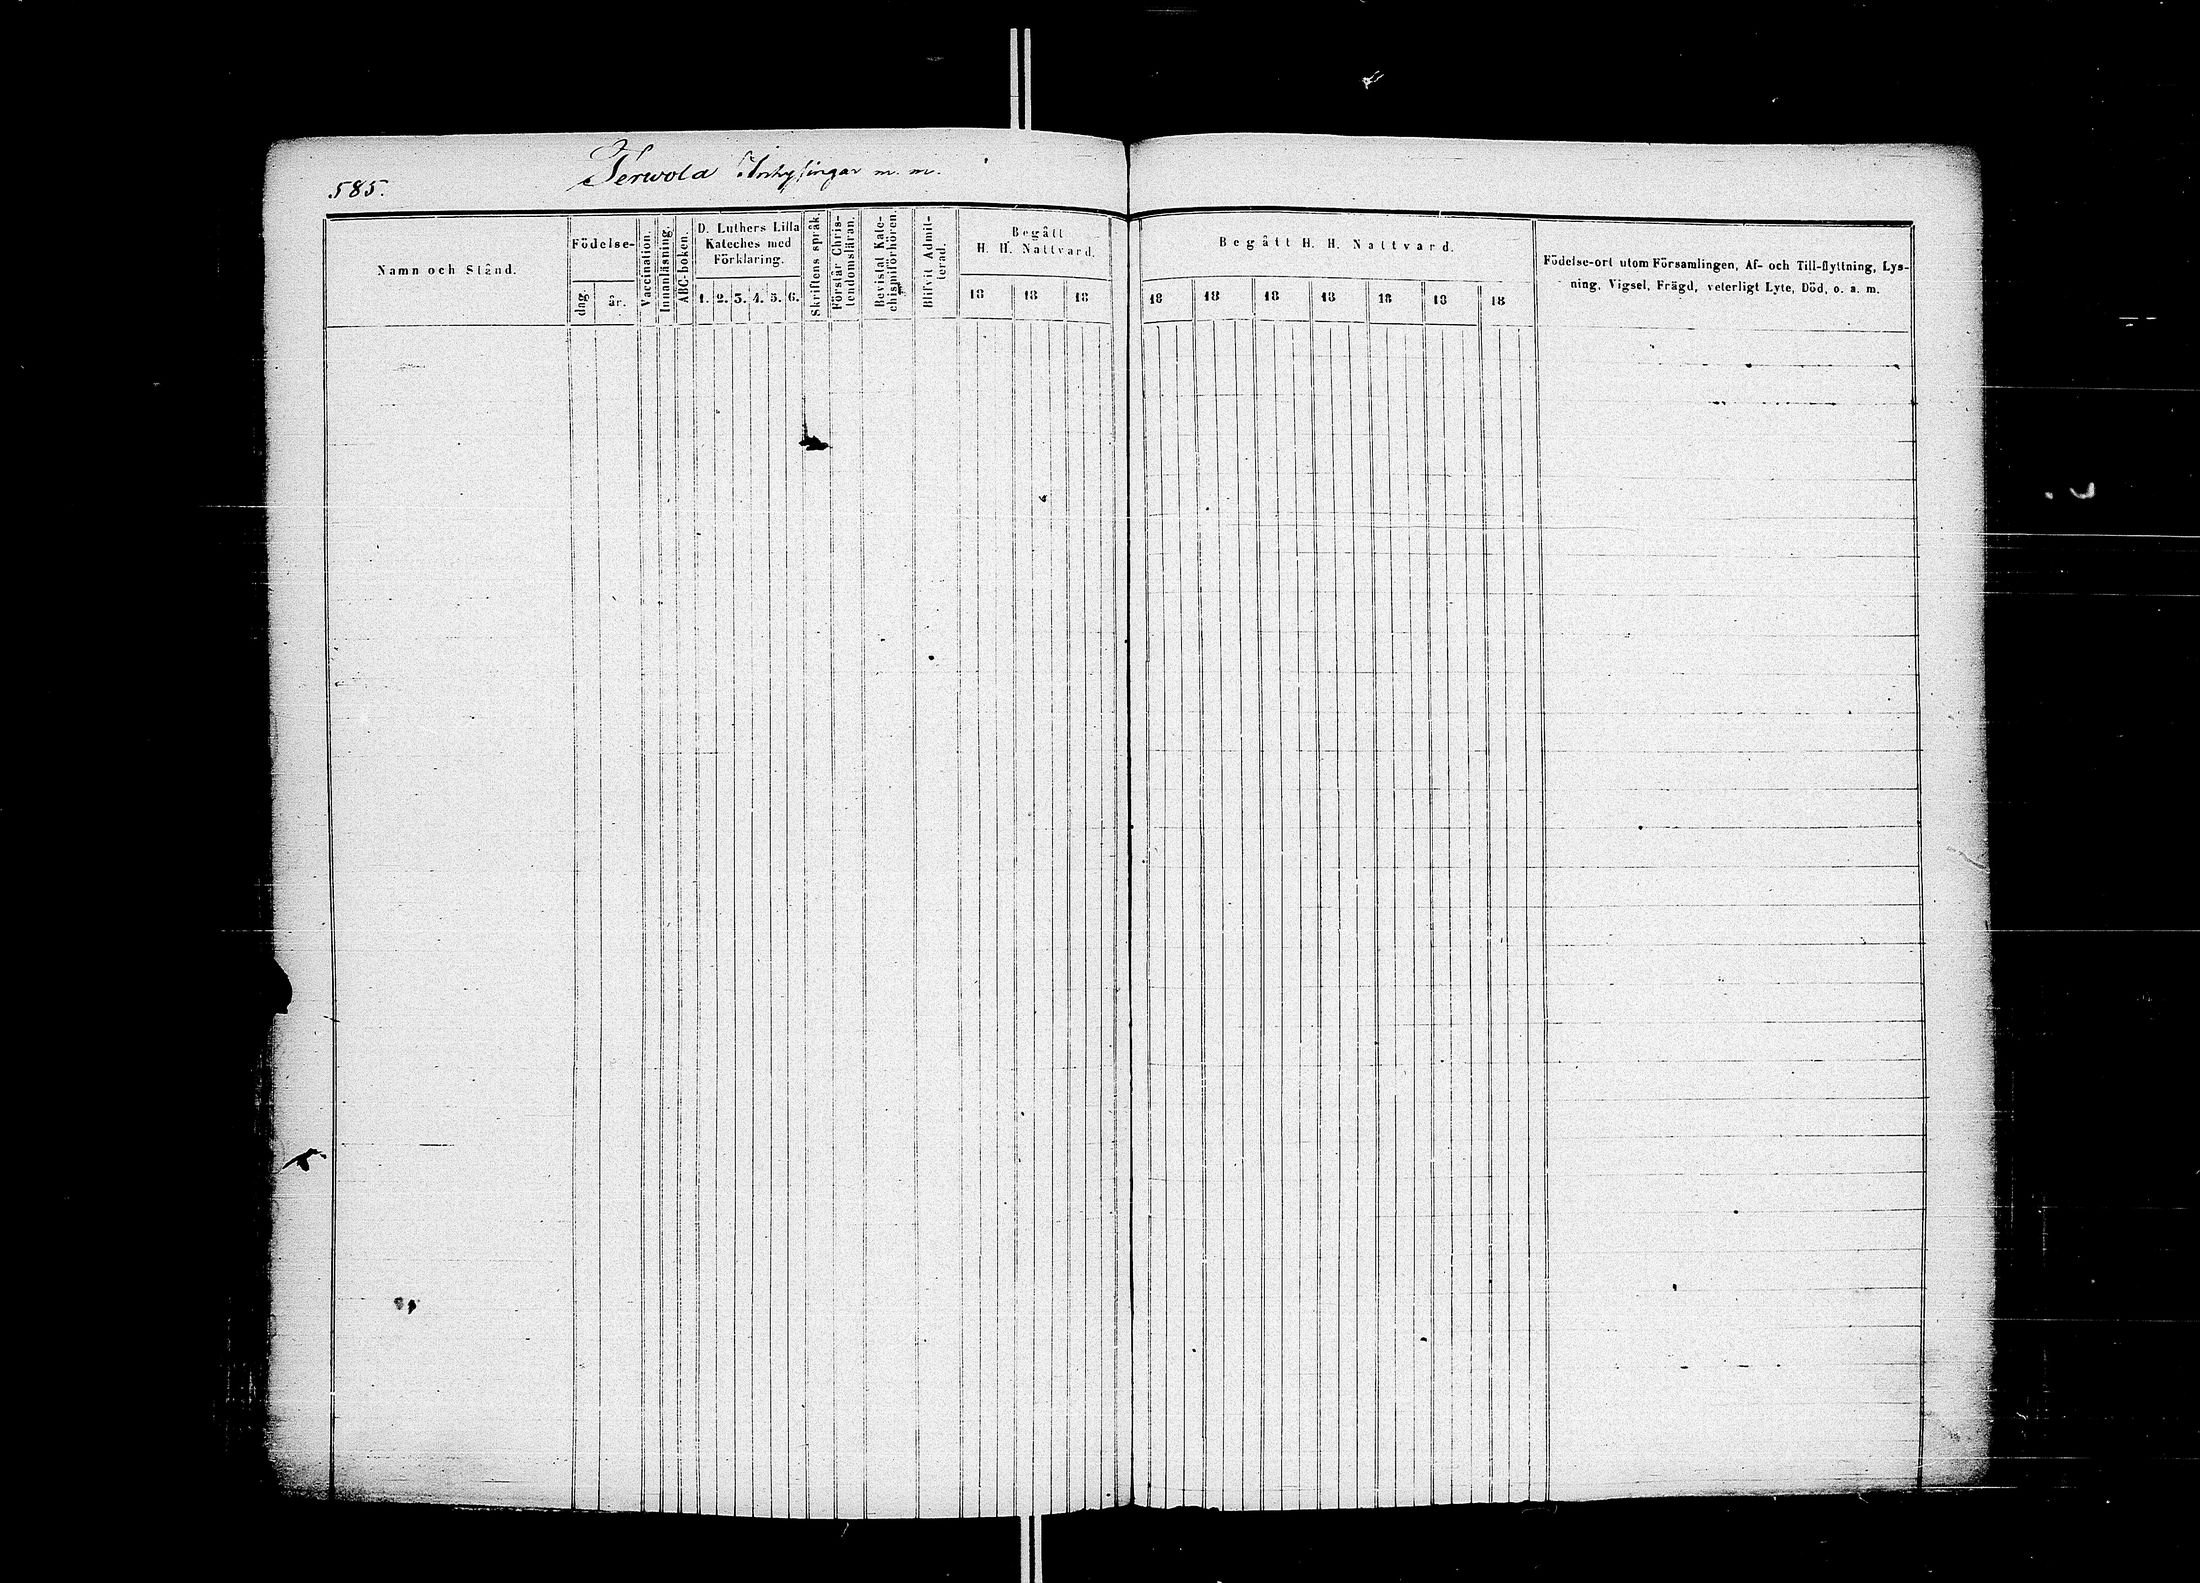 585.
Terwola Inhysingar m. m.
Namn och Stånd.
Födelse-
dag.
år.
Vaccination.
Innanläsning.
ABC-boken.
D. Luthers Lilla
Kateches med
Förklaring.
1. 2. 3. 4. 5. 6.
Skriftens språk.
Förstår Chris-
tendomsläran.
Bevistat Kate-
chismiförhören.
Blifvit Admit-
terad.
Begått
H. H. Nattvard.
18 18 18
Begått H. H. Nattvard.
18 18 18 18 18 18 18
Födelse-ort utom Församlingen, Af- och Till-flyttning, Lys-
ning, Vigsel, Frägd, veterligt Lyte, Död, o. s. m.